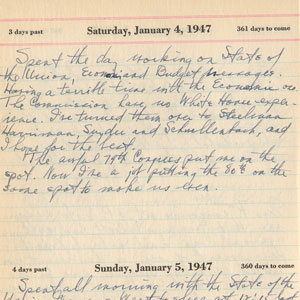 3 days past Saturday, January 4, 1947 361 days to come
Spent the day working on State of
the Union, Economic and Budget messages.
Having a terrible time with the Economic one.
The Commission have no White House expe-
rience. I've turned them over to Steelman
Harriman, Snyder and Schwellenbach, and
I hope for the best.
The awful 79th Congress put me on the
spot. Now I've a job putting the 80th on the
same spot to make us even.
4 days past Sunday, January 5, 1947 360 days to come
Spent all morning with the State of the